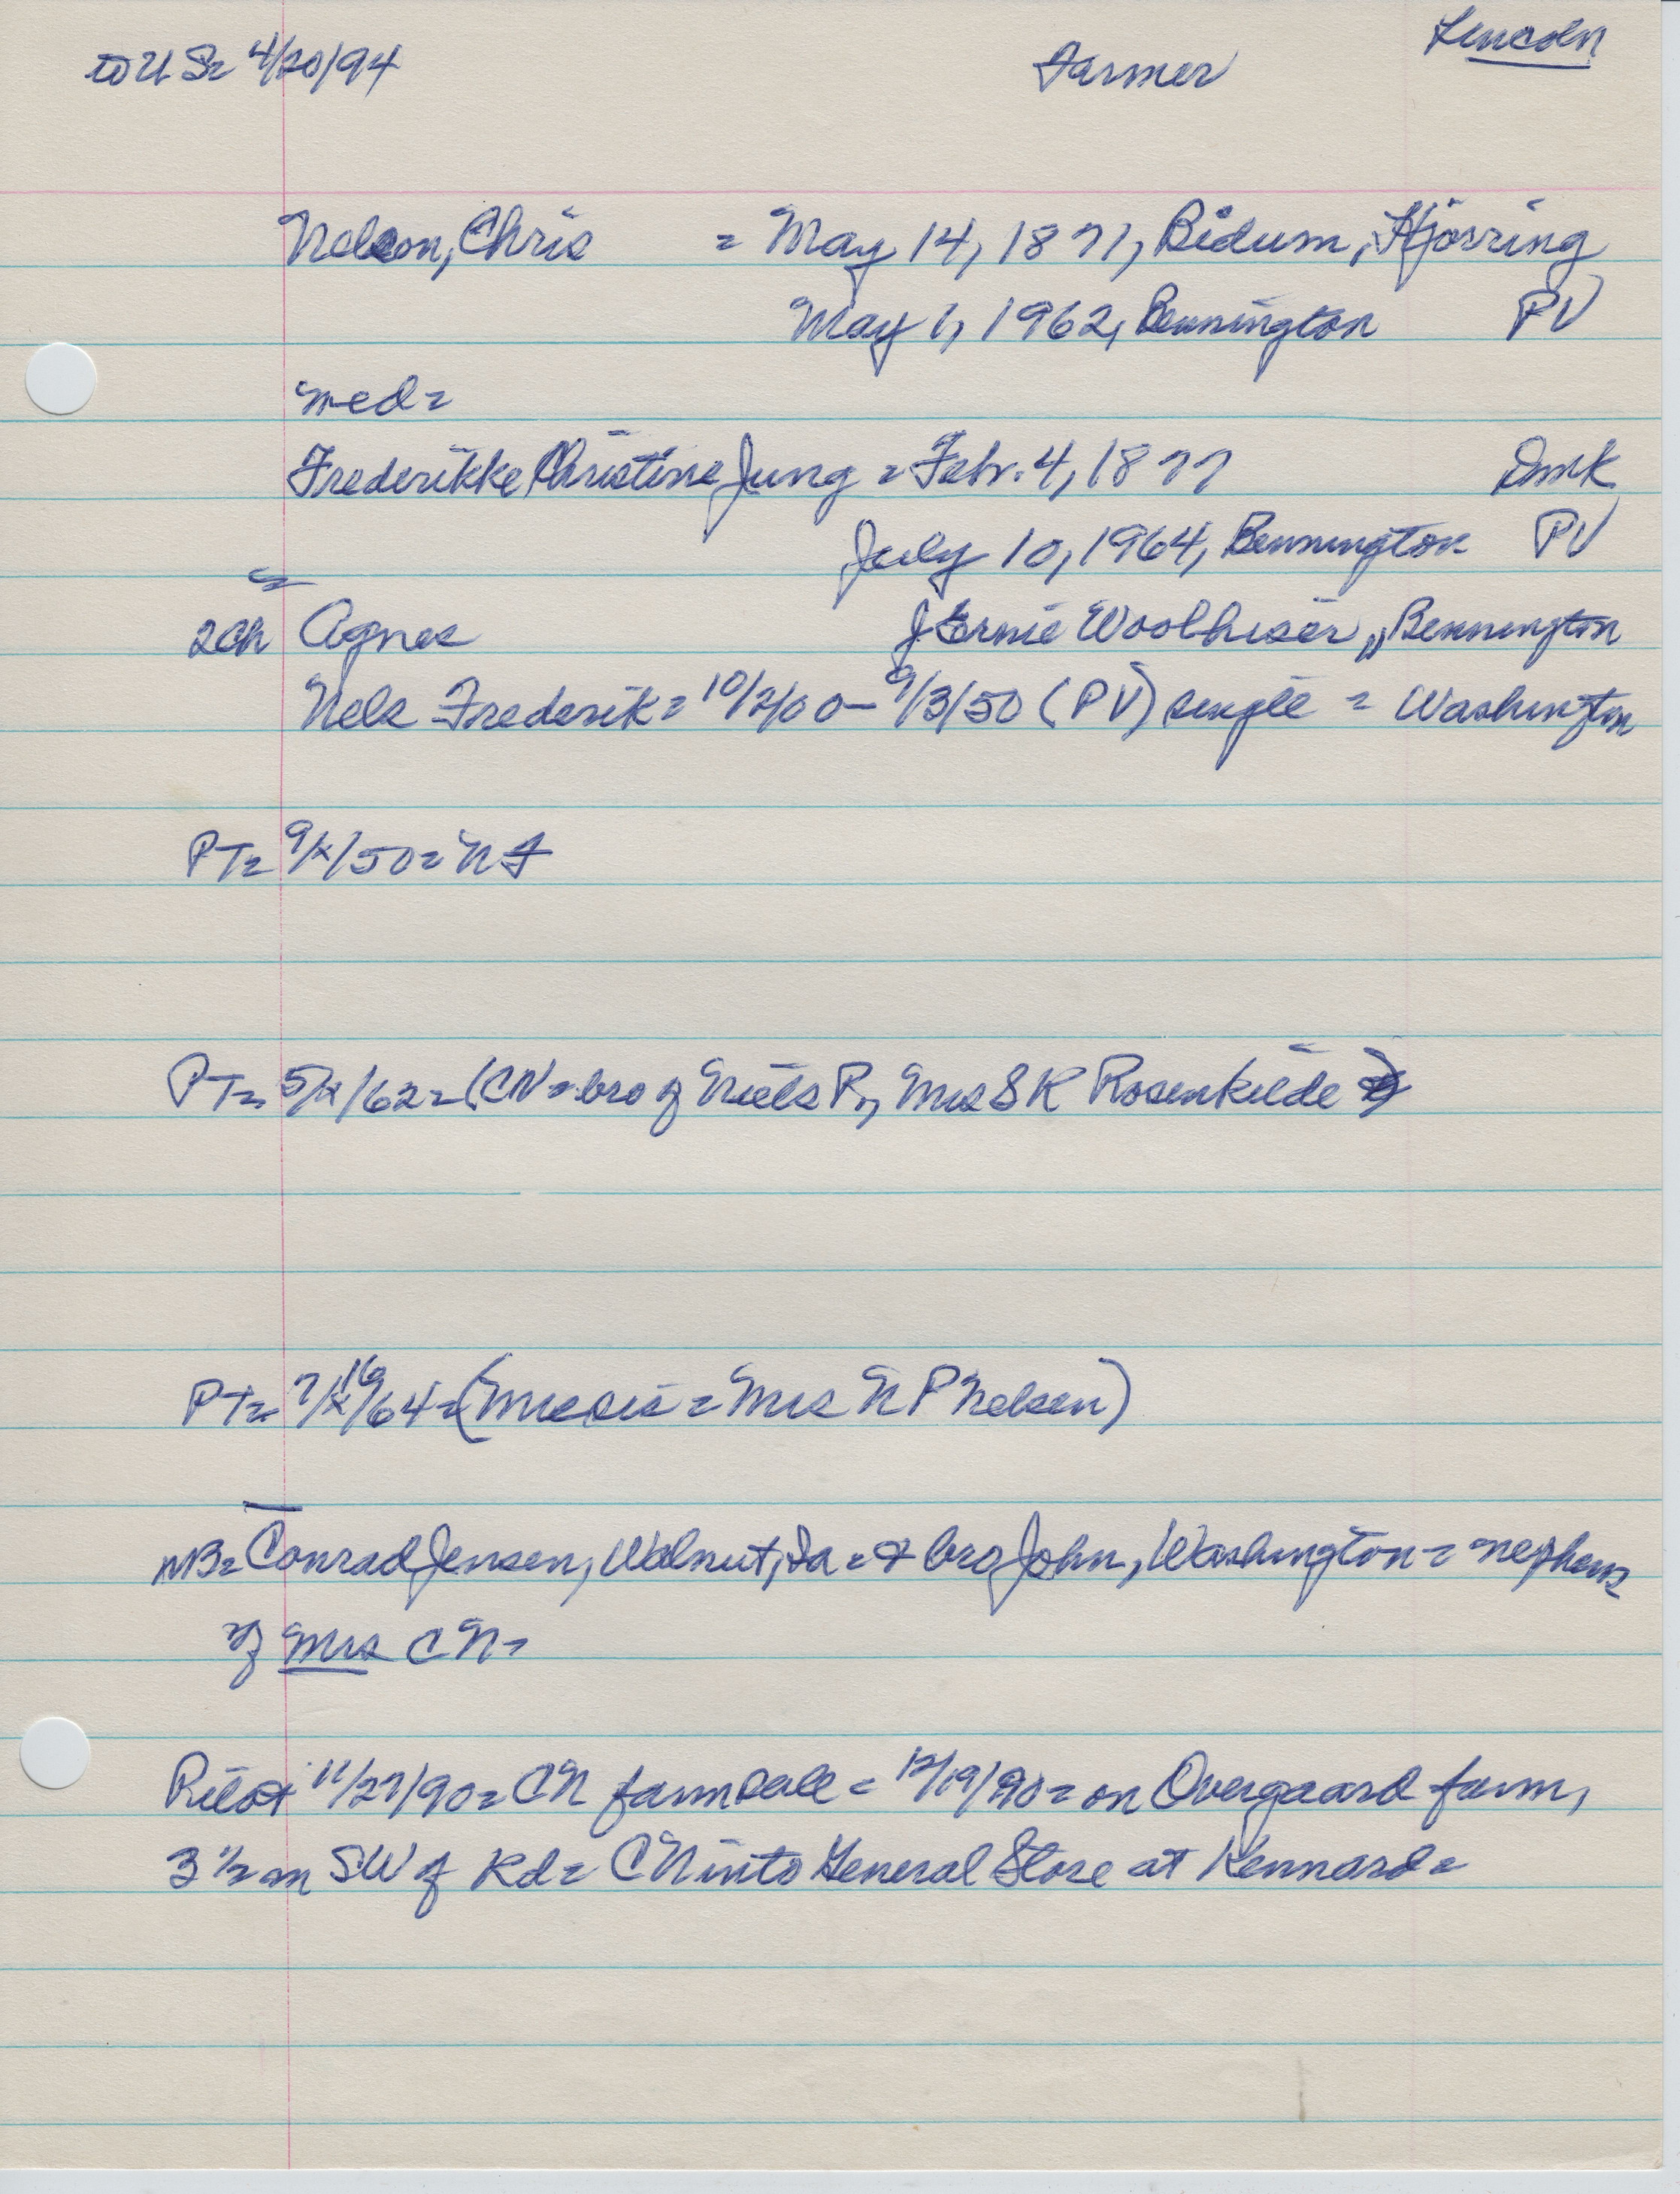 to U S= 4/20/94 Farmer Lincoln
Nelson, Chris = May 14, 1871, Bidum, Hjörring
May 1, 1962, Bennington PV
med=
Frederikke Christine Jung = Febr. 4, 1877 Dmk
July 10, 1964, Bennington PV
2 Ch Agnes Ernie Woolhiser, Bennington
Nels Frederik = 10/2/00 - 9/3/50 (PV) single = Washington
PT= 9/x/50= N F
PT= 5/x/62= (CN = bro of Niels P, Mrs S K Rosenkilde
PT= 7/16/64= ( = Mrs N P Nelsen)
NB= Conrad Jensen, Walnut, Ia = & bro John, Washington = nephews
of Mrs C N=
Pilot 11/27/90= CN farm sale = 12/19/90= on Overgaard farm,
3 1/2 m SW of Kd= CN into General Store at Kennard=